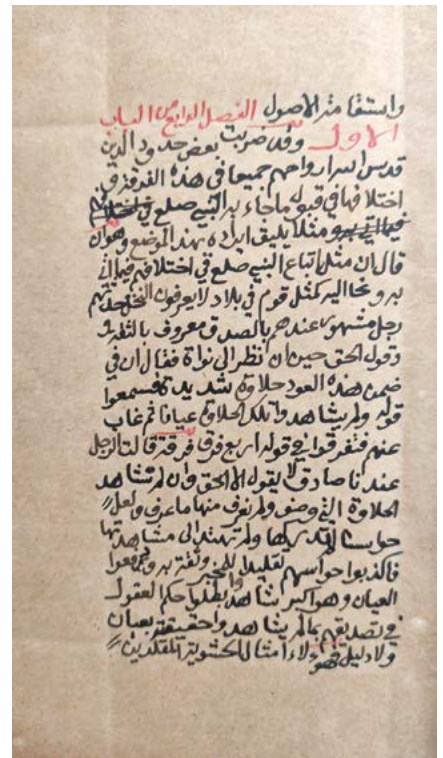 واستقامة الاصول الفصل الرابع من الباب
الاول وقد ضربت بعض حدود الدين
قدس اسرار واحهم جميعا في هذه الفرقة في
اختلافها في قبول ما جاء به النبي صلع
فيما اتى به ومثلا يليق ايراده بهذا الموضع وهو ان
قال ان مثل اتباع النبي صلع في اختلافهم فيما اتى
به ونحا اليه كمثل قوم في بلاد لا يعرفون النخل
رجل مشهور عندهم بالصدق معروف بالثقة
وقول الحق حين ان نظر الى نواة فقال ان في
ضمن هذه العود حلاوة شديدة فسمعوا
قوله ولم يشاهدوا تلك الحلاوة عيانا ثم غاب
عنهم فتفرقوا في قوله اربع فرق فرقة قالت الرجل
عندنا صادق لا يقول الا الحق وان لم نشاهد
الحلاوة التي وصف ولم نعرف منها ما عرف ولعل
حواسنا لم تدركها ولم تهتد الى مشاهدتها
فاكذبوا حواسهم تقليدا للمخبر وثقة به
العيان وهو اكبر شاهد وابطلوا حكم العقول
في تصديقهم بما لم يشاهدوا حقيقته بعيان
ولا دليل فهولاء امثال الحشوية المقلدين